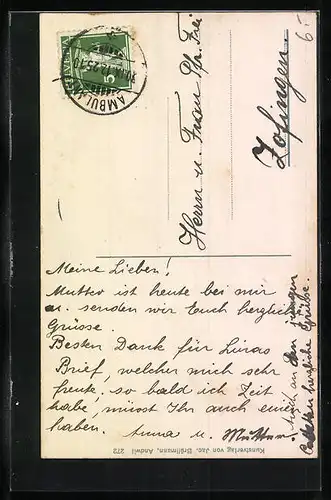 6.-
AMBULANT
HELVETIA
5
Herrn u. Frau Ph. Frei
Zofingen
Meine Lieben!
Mutter ist heute bei mir
u. senden wir Euch herzlich
Grüsse.
Besten Dank für Linas
Brief, welcher mich sehr
freute, so bald ich Zeit
habe, müsst Ihr auch einen
haben.
Anna u. Mutter.
Auch an den jungen
herzliche Grüsse.
Kunstverlag von Jac. Brüllmann, Andwil 272